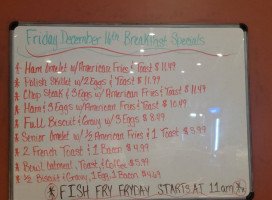 Friday December 16th Breakfast Specials
Ham Omlet w/American Fries & Toast $11.49
Polish Skillet w/2 Eggs & Toast $11.49
Chop Steak & 3 Eggs w/American Fries & Toast $
Ham & 3 Eggs w/American Fries & Toast $10.49
Full Biscuit & Gravy w/3 Eggs $8.99
Senior Omlet w/ 1/2 American Fries & 1 Toast $5.99
2 French Toast & 1 Bacon $4.99
Bowl Oatmeal, Toast & Coffee $5.55
1/2 Biscuit & Gravy, 1 Egg, 1 Bacon $4.69
FISH FRY FRYDAY STARTS AT 11am